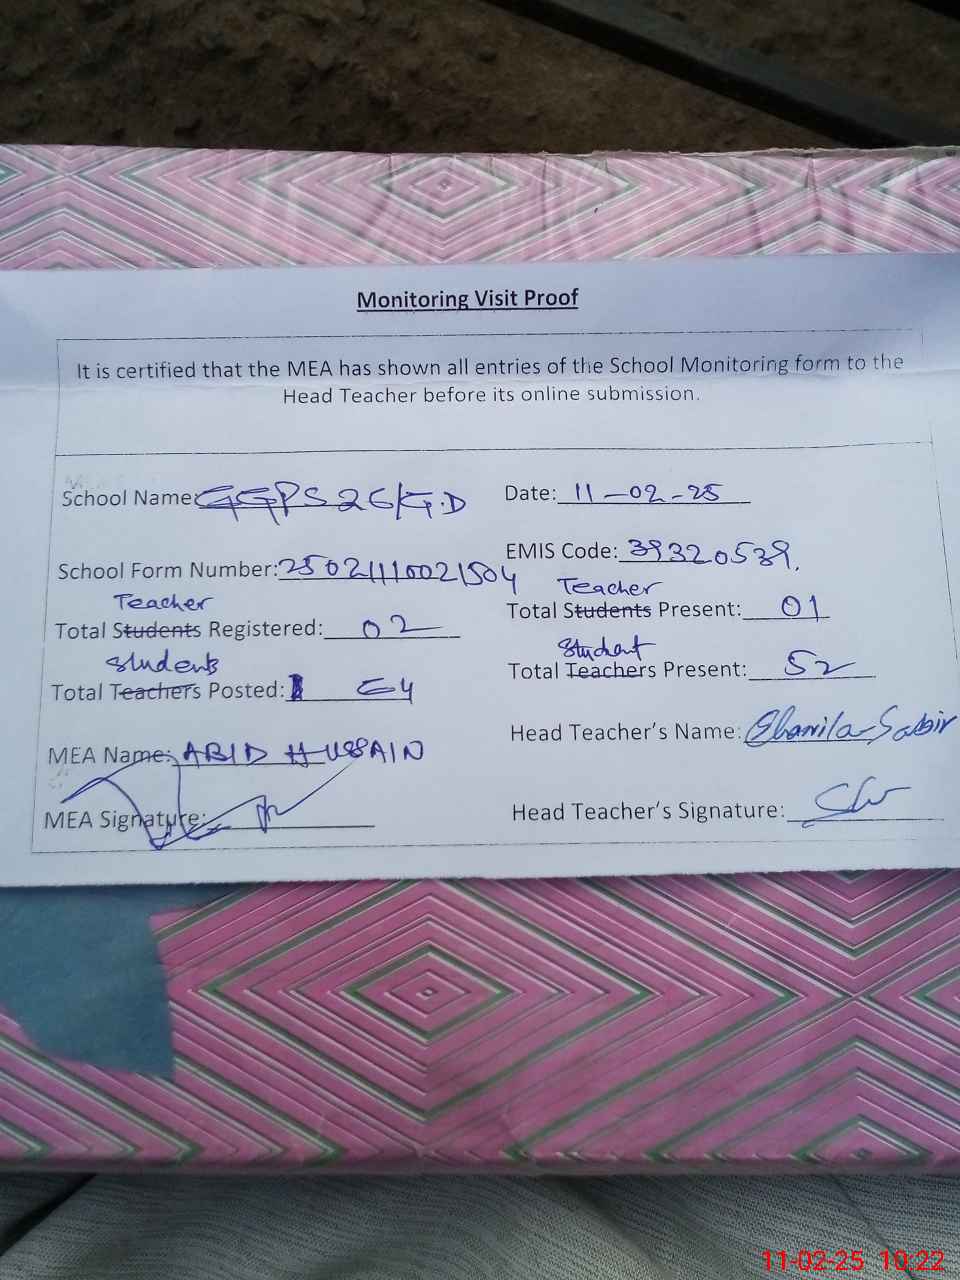 Monitoring Visit Proof
It is certified that the MEA has shown all entries of the School Monitoring form to the
Head Teacher before its online submission.
School Name: GGPS 26/G.D
Date: 11-02-25
School Form Number: 25021110021504
EMIS Code: 39320539.
Teacher
Total Students Registered: 02
Teacher
Total Students Present: 01
Students
Total Teachers Posted: 64
Student
Total Teachers Present: 52
MEA Name: ABID HUSSAIN
Head Teacher's Name: Sabir
MEA Signature:
Head Teacher's Signature:
11-02-25 10:22